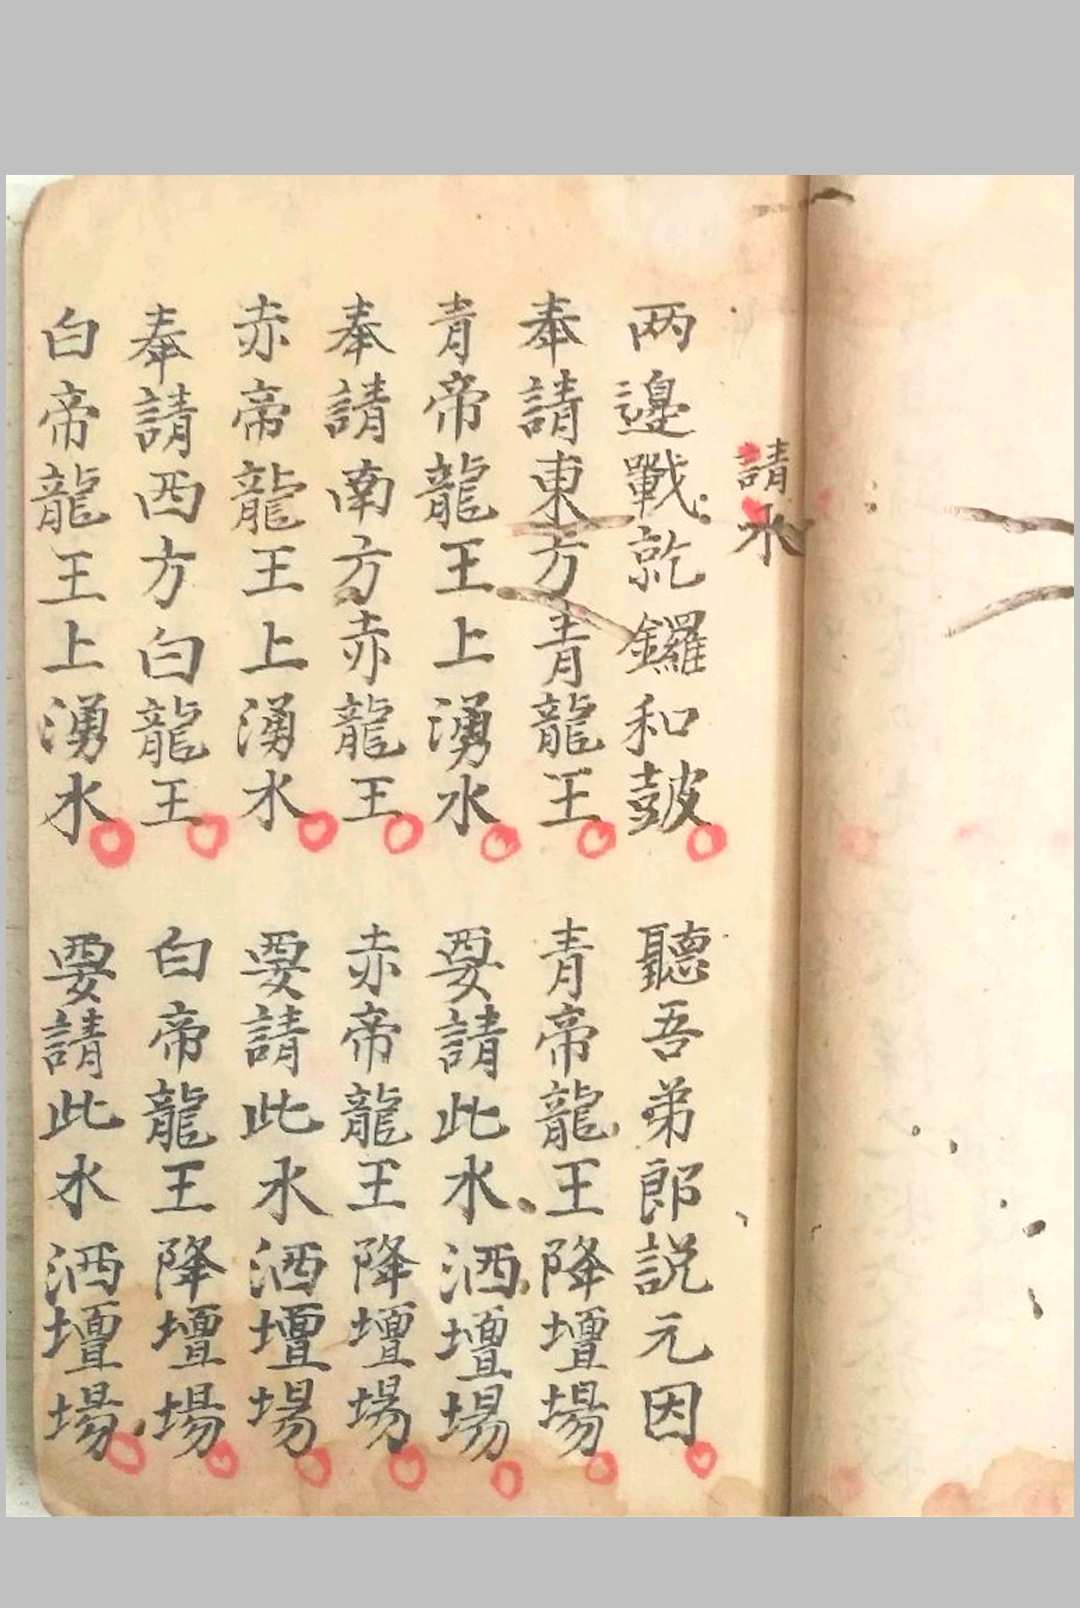 請水
两邊戰鑼和皷 聽吾弟郎說元因
奉請東方青龍王 青帝龍王降壇場
青帝龍王上湧水 要請此水洒壇場
奉請南方赤龍王 赤帝龍王降壇場
赤帝龍王上湧水 要請此水洒壇場
奉請西方白龍王 白帝龍王降壇場
白帝龍王上湧水 要請此水洒壇場